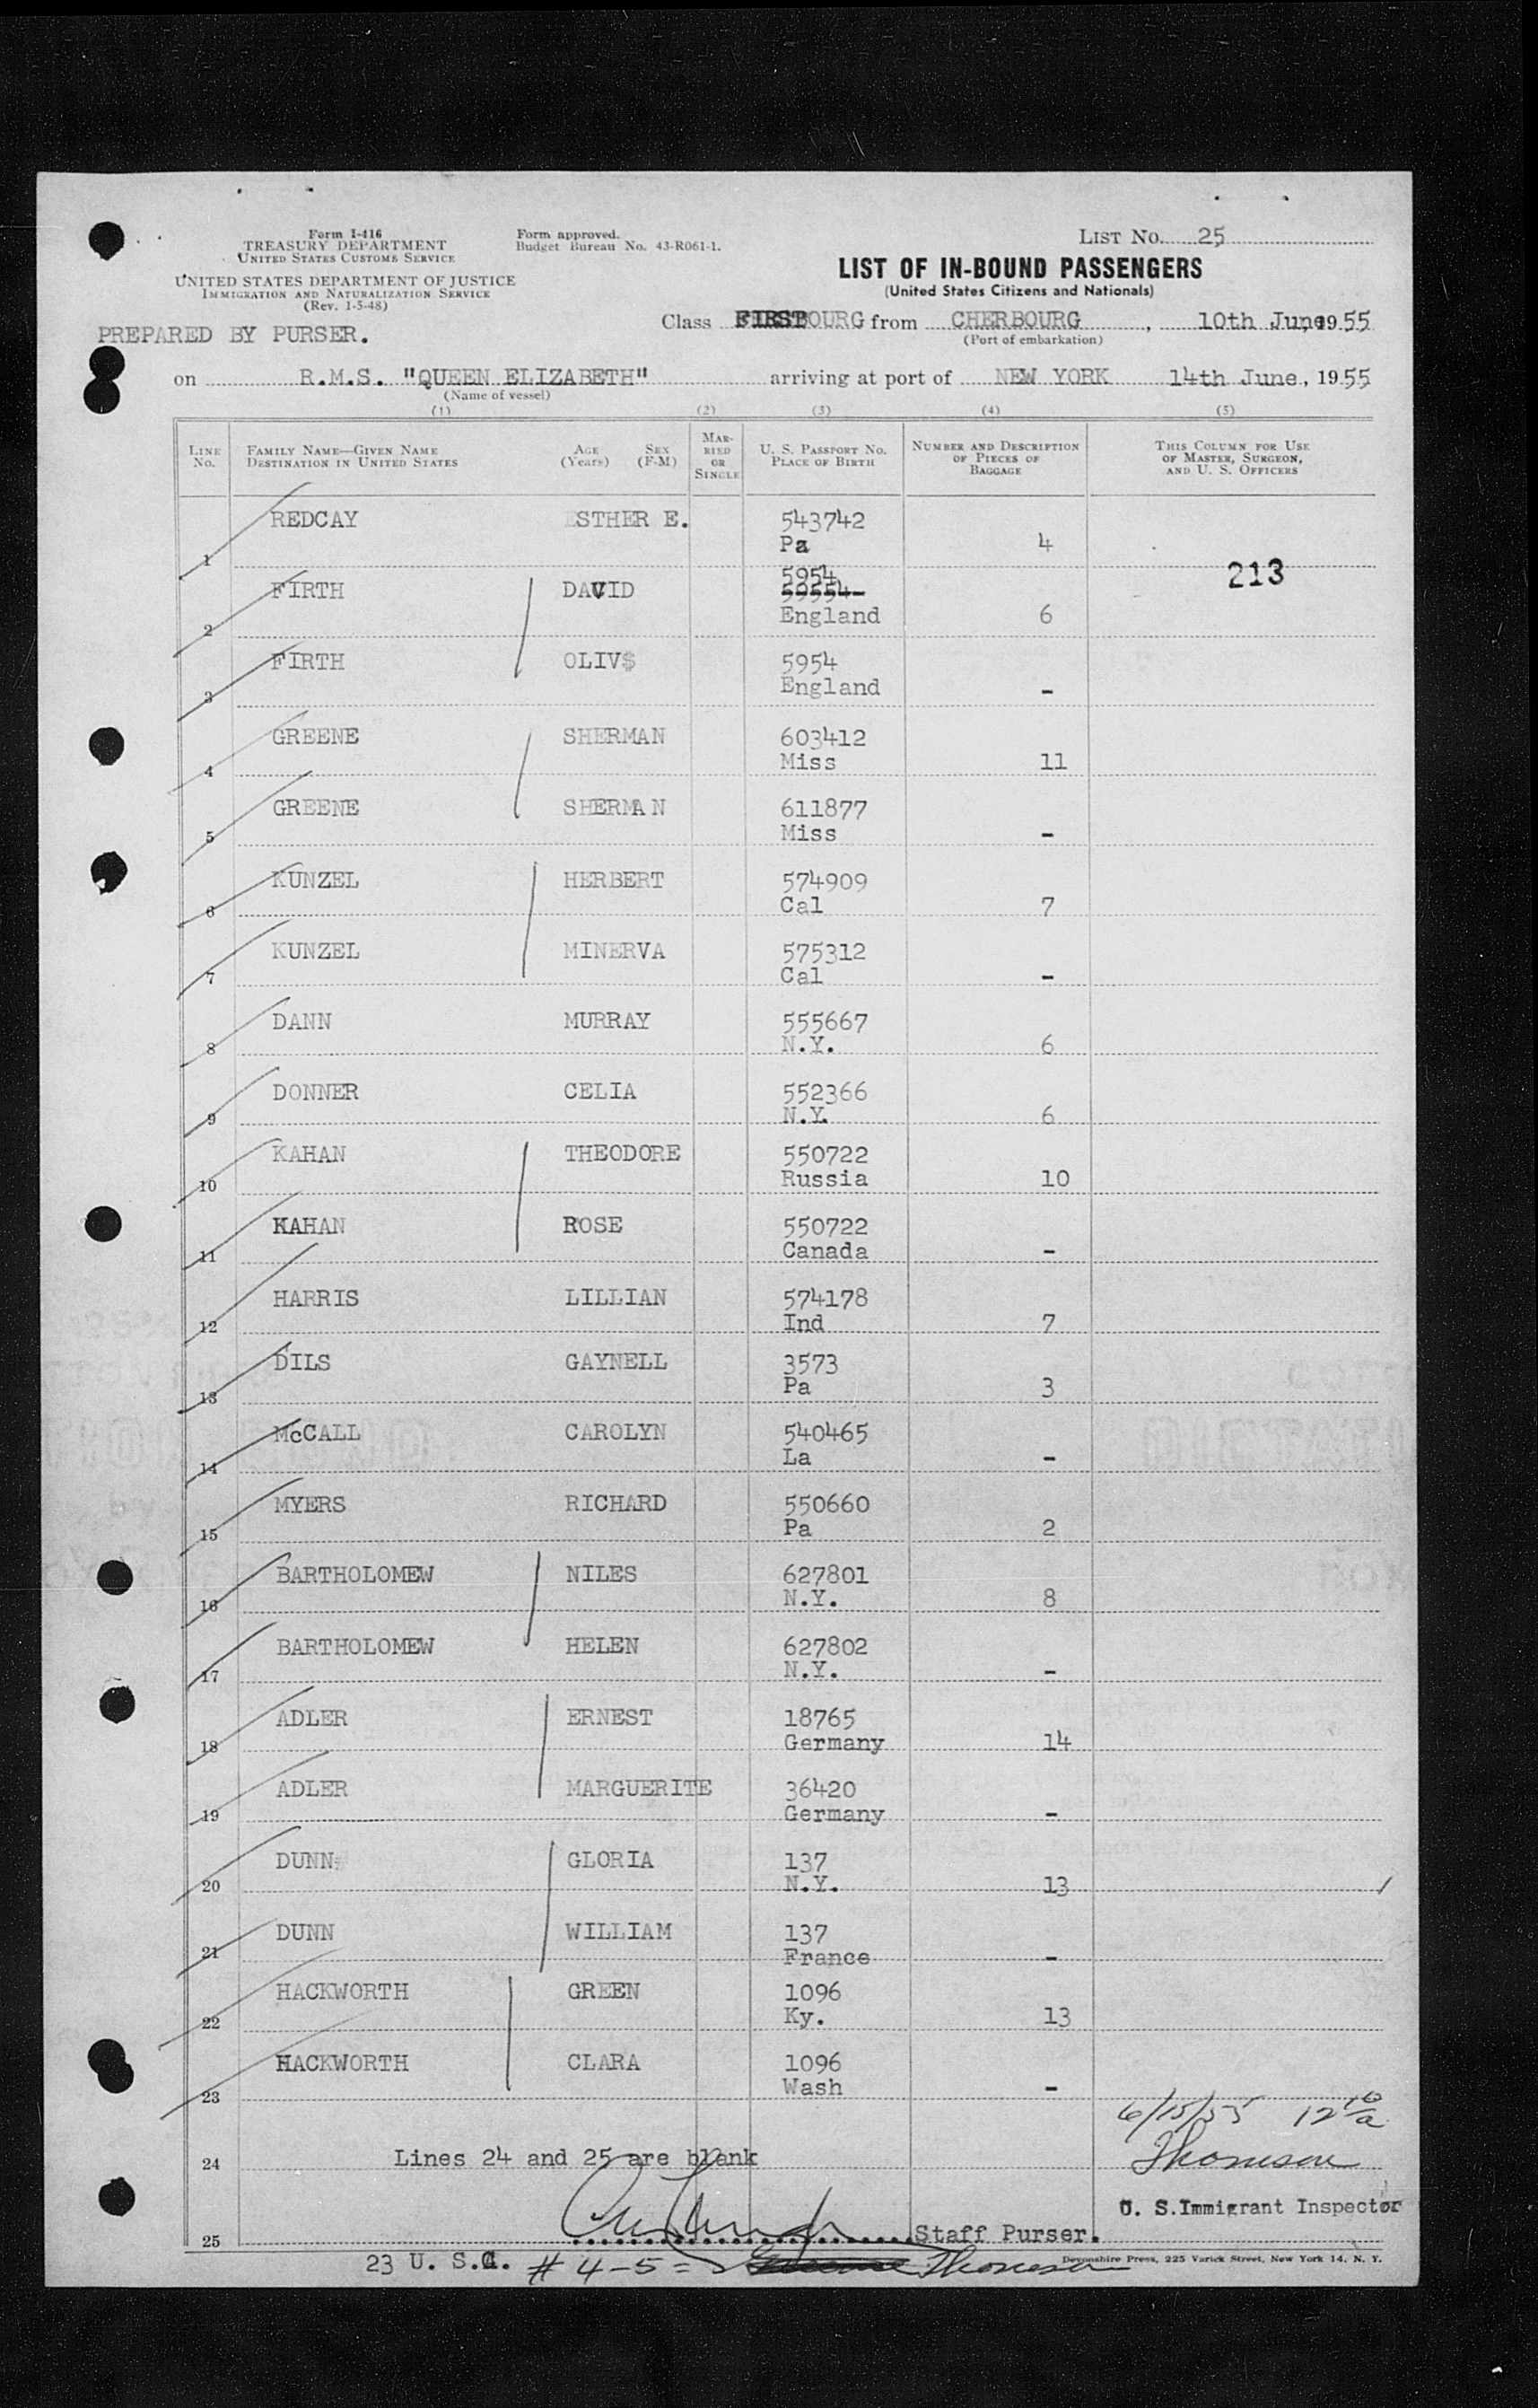 Form I-416
TREASURY DEPARTMENT
UNITED STATES CUSTOMS SERVICE
UNITED STATES DEPARTMENT OF JUSTICE
IMMIGRATION AND NATURALIZATION SERVICE
(Rev. 1-5-48)
Form approved.
Budget Bureau No. 43-R061-1.
LIST NO. 25
LIST OF IN-BOUND PASSENGERS
(United States Citizens and Nationals)
PREPARED BY PURSER.
Class FIRST from CHERBOURG, 10th June 1955
(Port of embarkation)
on R.M.S. "QUEEN ELIZABETH" arriving at port of NEW YORK 14th June, 1955
(Name of vessel)
(1) (2) (3) (4) (5)
LINE No. FAMILY NAME—GIVEN NAME DESTINATION IN UNITED STATES AGE (Years) SEX (F-M) MARRIED OR SINGLE U. S. PASSPORT NO. PLACE OF BIRTH NUMBER AND DESCRIPTION OF PIECES OF BAGGAGE THIS COLUMN FOR USE OF MASTER, SURGEON, AND U. S. OFFICERS
REDCAY ESTHER E. 543742
1 Pa 4
213
5954
FIRTH DAVID 59554
2 England 6
FIRTH OLIV$ 5954
3 England -
GREENE SHERMAN 603412
4 Miss 11
GREENE SHERMA N 611877
5 Miss -
KUNZEL HERBERT 574909
6 Cal 7
KUNZEL MINERVA 575312
7 Cal -
DANN MURRAY 555667
8 N.Y. 6
DONNER CELIA 552366
9 N.Y. 6
KAHAN THEODORE 550722
10 Russia 10
KAHAN ROSE 550722
11 Canada -
HARRIS LILLIAN 574178
12 Ind 7
DILS GAYNELL 3573
13 Pa 3
McCALL CAROLYN 540465
14 La -
MYERS RICHARD 550660
15 Pa 2
BARTHOLOMEW NILES 627801
16 N.Y. 8
BARTHOLOMEW HELEN 627802
17 N.Y. -
ADLER ERNEST 18765
18 Germany 14
ADLER MARGUERITE 36420
19 Germany -
DUNN GLORIA 137
20 N.Y. 13
DUNN WILLIAM 137
21 France -
HACKWORTH GREEN 1096
22 Ky. 13
HACKWORTH CLARA 1096
23 Wash -
6/15/55 12 10/a
24 Lines 24 and 25 are blank Thomeson
U. S. Immigrant Inspector
25 Staff Purser.
23 U. S. C. # 4-5 = Thomeson
Devonshire Press, 225 Varick Street, New York 14, N. Y.